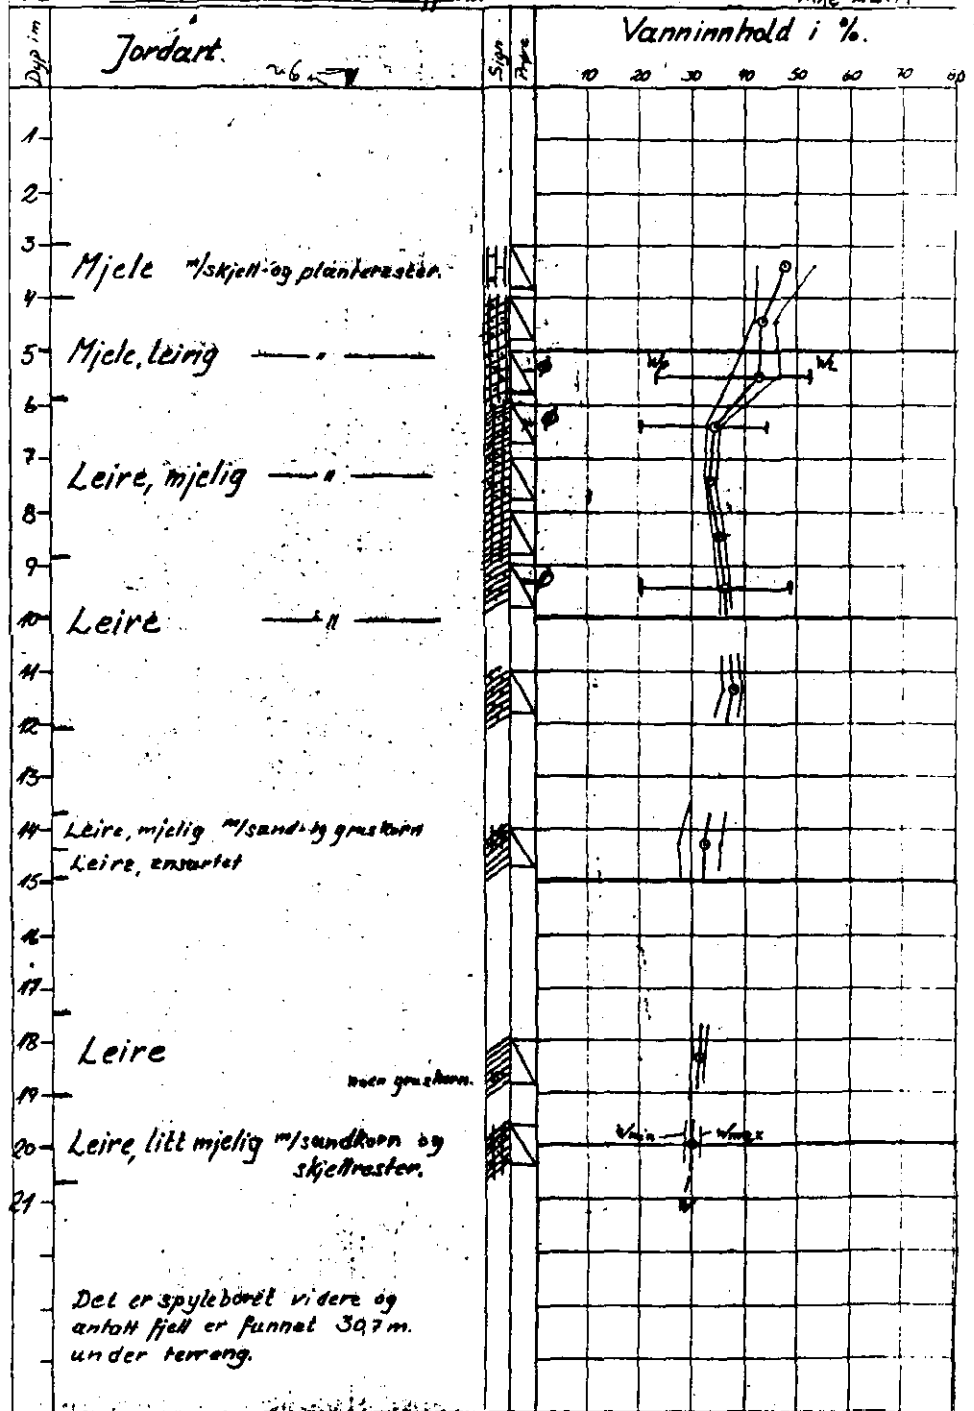 Jordart.
Vanninnhold i %.
Dyp i m
Sign
Prøve
10 20 30 40 50 60 70 80
1
2
3
Mjele m/skjell- og planterester.
4
5
Mjele, leirig — " —
Wp WL
6
7
Leire, mjelig — " —
8
9
10
Leire — " —
11
12
13
14
Leire, mjelig m/sand- og gruskorn
Leire, ensartet
15
16
17
18
Leire
noen gruskorn.
19
20
Leire, litt mjelig m/sandkorn og
skjellrester.
Wmin Wmax
21
W
Det er spyleboret videre og
antatt fjell er funnet 30,7 m.
under terreng.